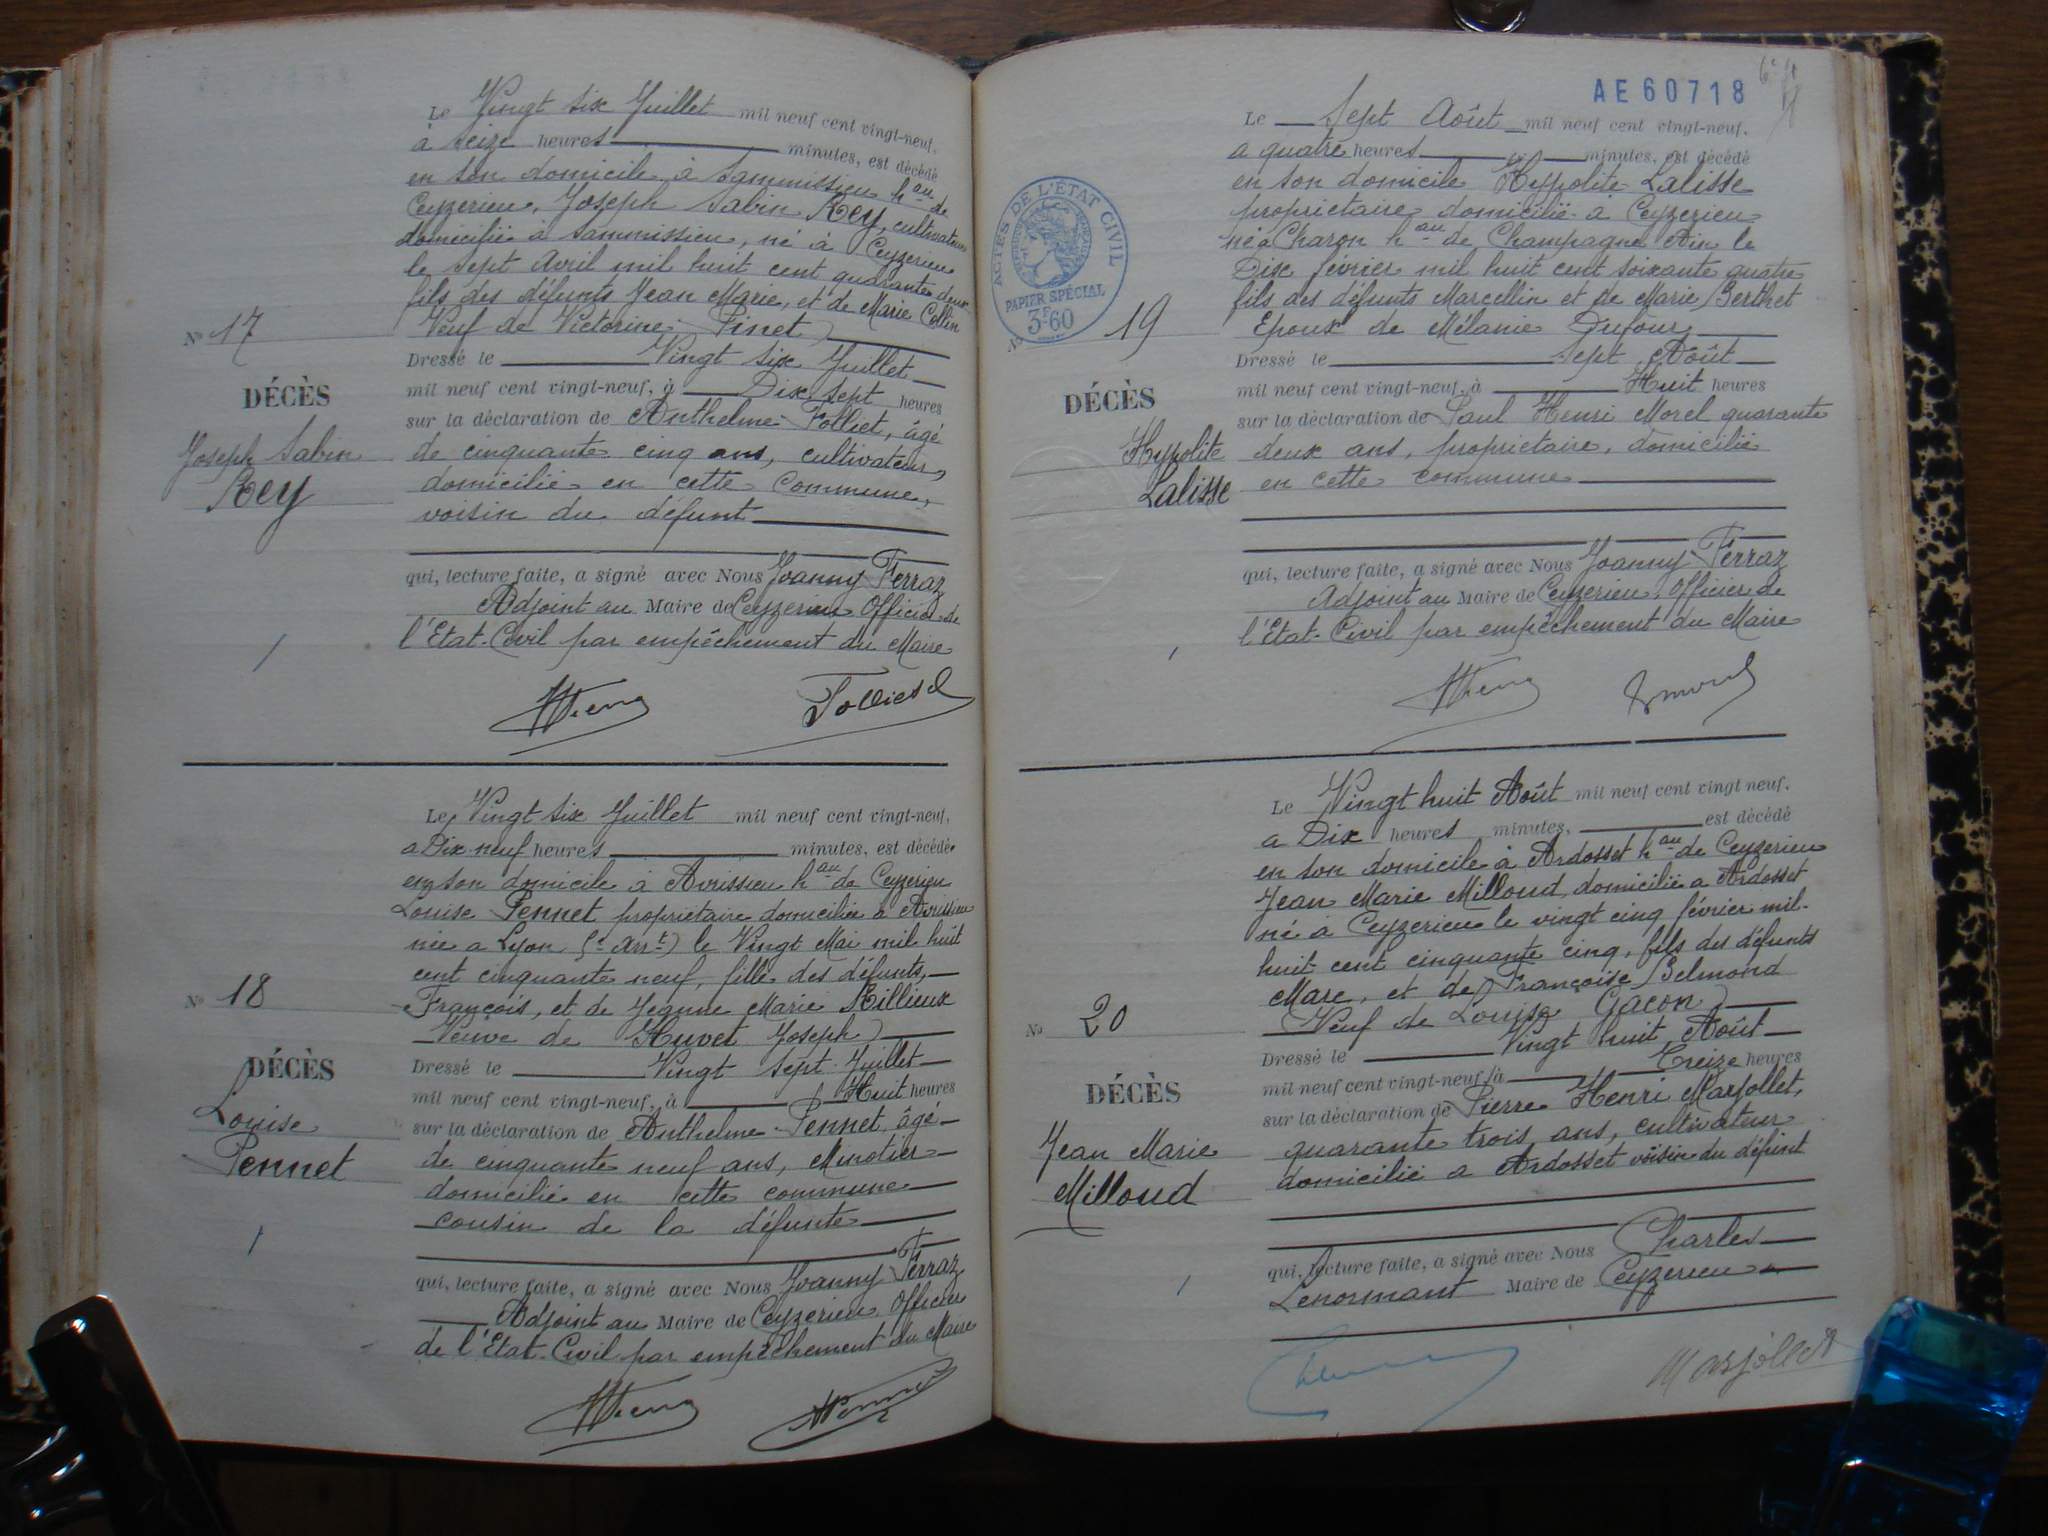 Le Vingt six Juillet mil neuf cent vingt-neuf,
à seize heures minutes, est décédé
en son domicile à Sammissieu hau de
Ceyzerieu, Joseph Sabin Rey, cultivateur
domicilié à Sammissieu, né à Ceyzerieu
le sept Avril mil huit cent quarante deux
fils des défunts Jean Marie, et de Marie Collin
Veuf de Victorine Pinet
No 17
DÉCÈS
Joseph Sabin
Rey
Dressé le Vingt six Juillet
mil neuf cent vingt-neuf, à Dix sept heures
sur la déclaration de Anthelme Folliet, âgé
de cinquante cinq ans, cultivateur,
domicilié en cette Commune,
voisin du défunt
qui, lecture faite, a signé avec Nous Joanny Ferraz
Adjoint au Maire de Ceyzerieu Officier de
l'Etat-Civil par empêchement du Maire
Folliet
Le Vingt six Juillet mil neuf cent vingt-neuf,
a Dix neuf heures minutes, est décédée
en son domicile à Avrissieu hau de Ceyzerieu
Louise Pennet propriétaire domiciliée à Avrissieu
née a Lyon arrt) le Vingt Mai mil huit
cent cinquante neuf, fille des défunts,
François, et de Jeanne Marie Rillieux
Veuve de Huvet Joseph)
No 18
DÉCÈS
Louise
Pennet
Dressé le Vingt sept Juillet
mil neuf cent vingt-neuf, à Huit heures
sur la déclaration de Anthelme Pennet, âgé
de cinquante neuf ans, Minotier
domicilié en cette commune
cousin de la défunte
qui, lecture faite, a signé avec Nous Joanny Ferraz
Adjoint au Maire de Ceyzerieu Officier
de l'Etat-Civil par empêchement du Maire
AE 60718
ACTES DE L'ÉTAT CIVIL
PAPIER SPÉCIAL
3F60
Le Sept Août mil neuf cent vingt-neuf.
a quatre heures minutes, est décédé
en son domicile Hyppolite Lalisse
propriétaire domicilié à Ceyzerieu
né à Charon hau de Champagne Ain le
Dix février mil huit cent soixante quatre
fils des défunts Marcellin et de Marie Berthet
Epoux de Mélanie Dufour
No 19
DÉCÈS
Hyppolite
Lalisse
Dressé le Sept Août
mil neuf cent vingt-neuf, à Huit heures
sur la déclaration de Paul Henri Morel quarante
deux ans, propriétaire, domicilié
en cette commune
qui, lecture faite, a signé avec Nous Joanny Ferraz
Adjoint au Maire de Ceyzerieu Officier de
l'Etat-Civil par empêchement du Maire
Le Vingt huit Août mil neuf cent vingt neuf.
a Dix heures minutes, est décédé
en son domicile à Ardosset hau de Ceyzerieu
Jean Marie Milloud, domicilié a Ardosset
né à Ceyzerieu le vingt cinq février mil
huit cent cinquante cinq, fils des défunts
Marc, et de Françoise Belmond
(Veuf de Louise Gacon)
No 20
DÉCÈS
Jean Marie
Milloud
Dressé le Vingt huit Août
mil neuf cent vingt-neuf à Treize heures
sur la déclaration de Pierre Henri Marjollet,
quarante trois ans, cultivateur
domicilié a Ardosset voisin du défunt
qui, lecture faite, a signé avec Nous Charles
Lenormant Maire de Ceyzerieu
Marjollet